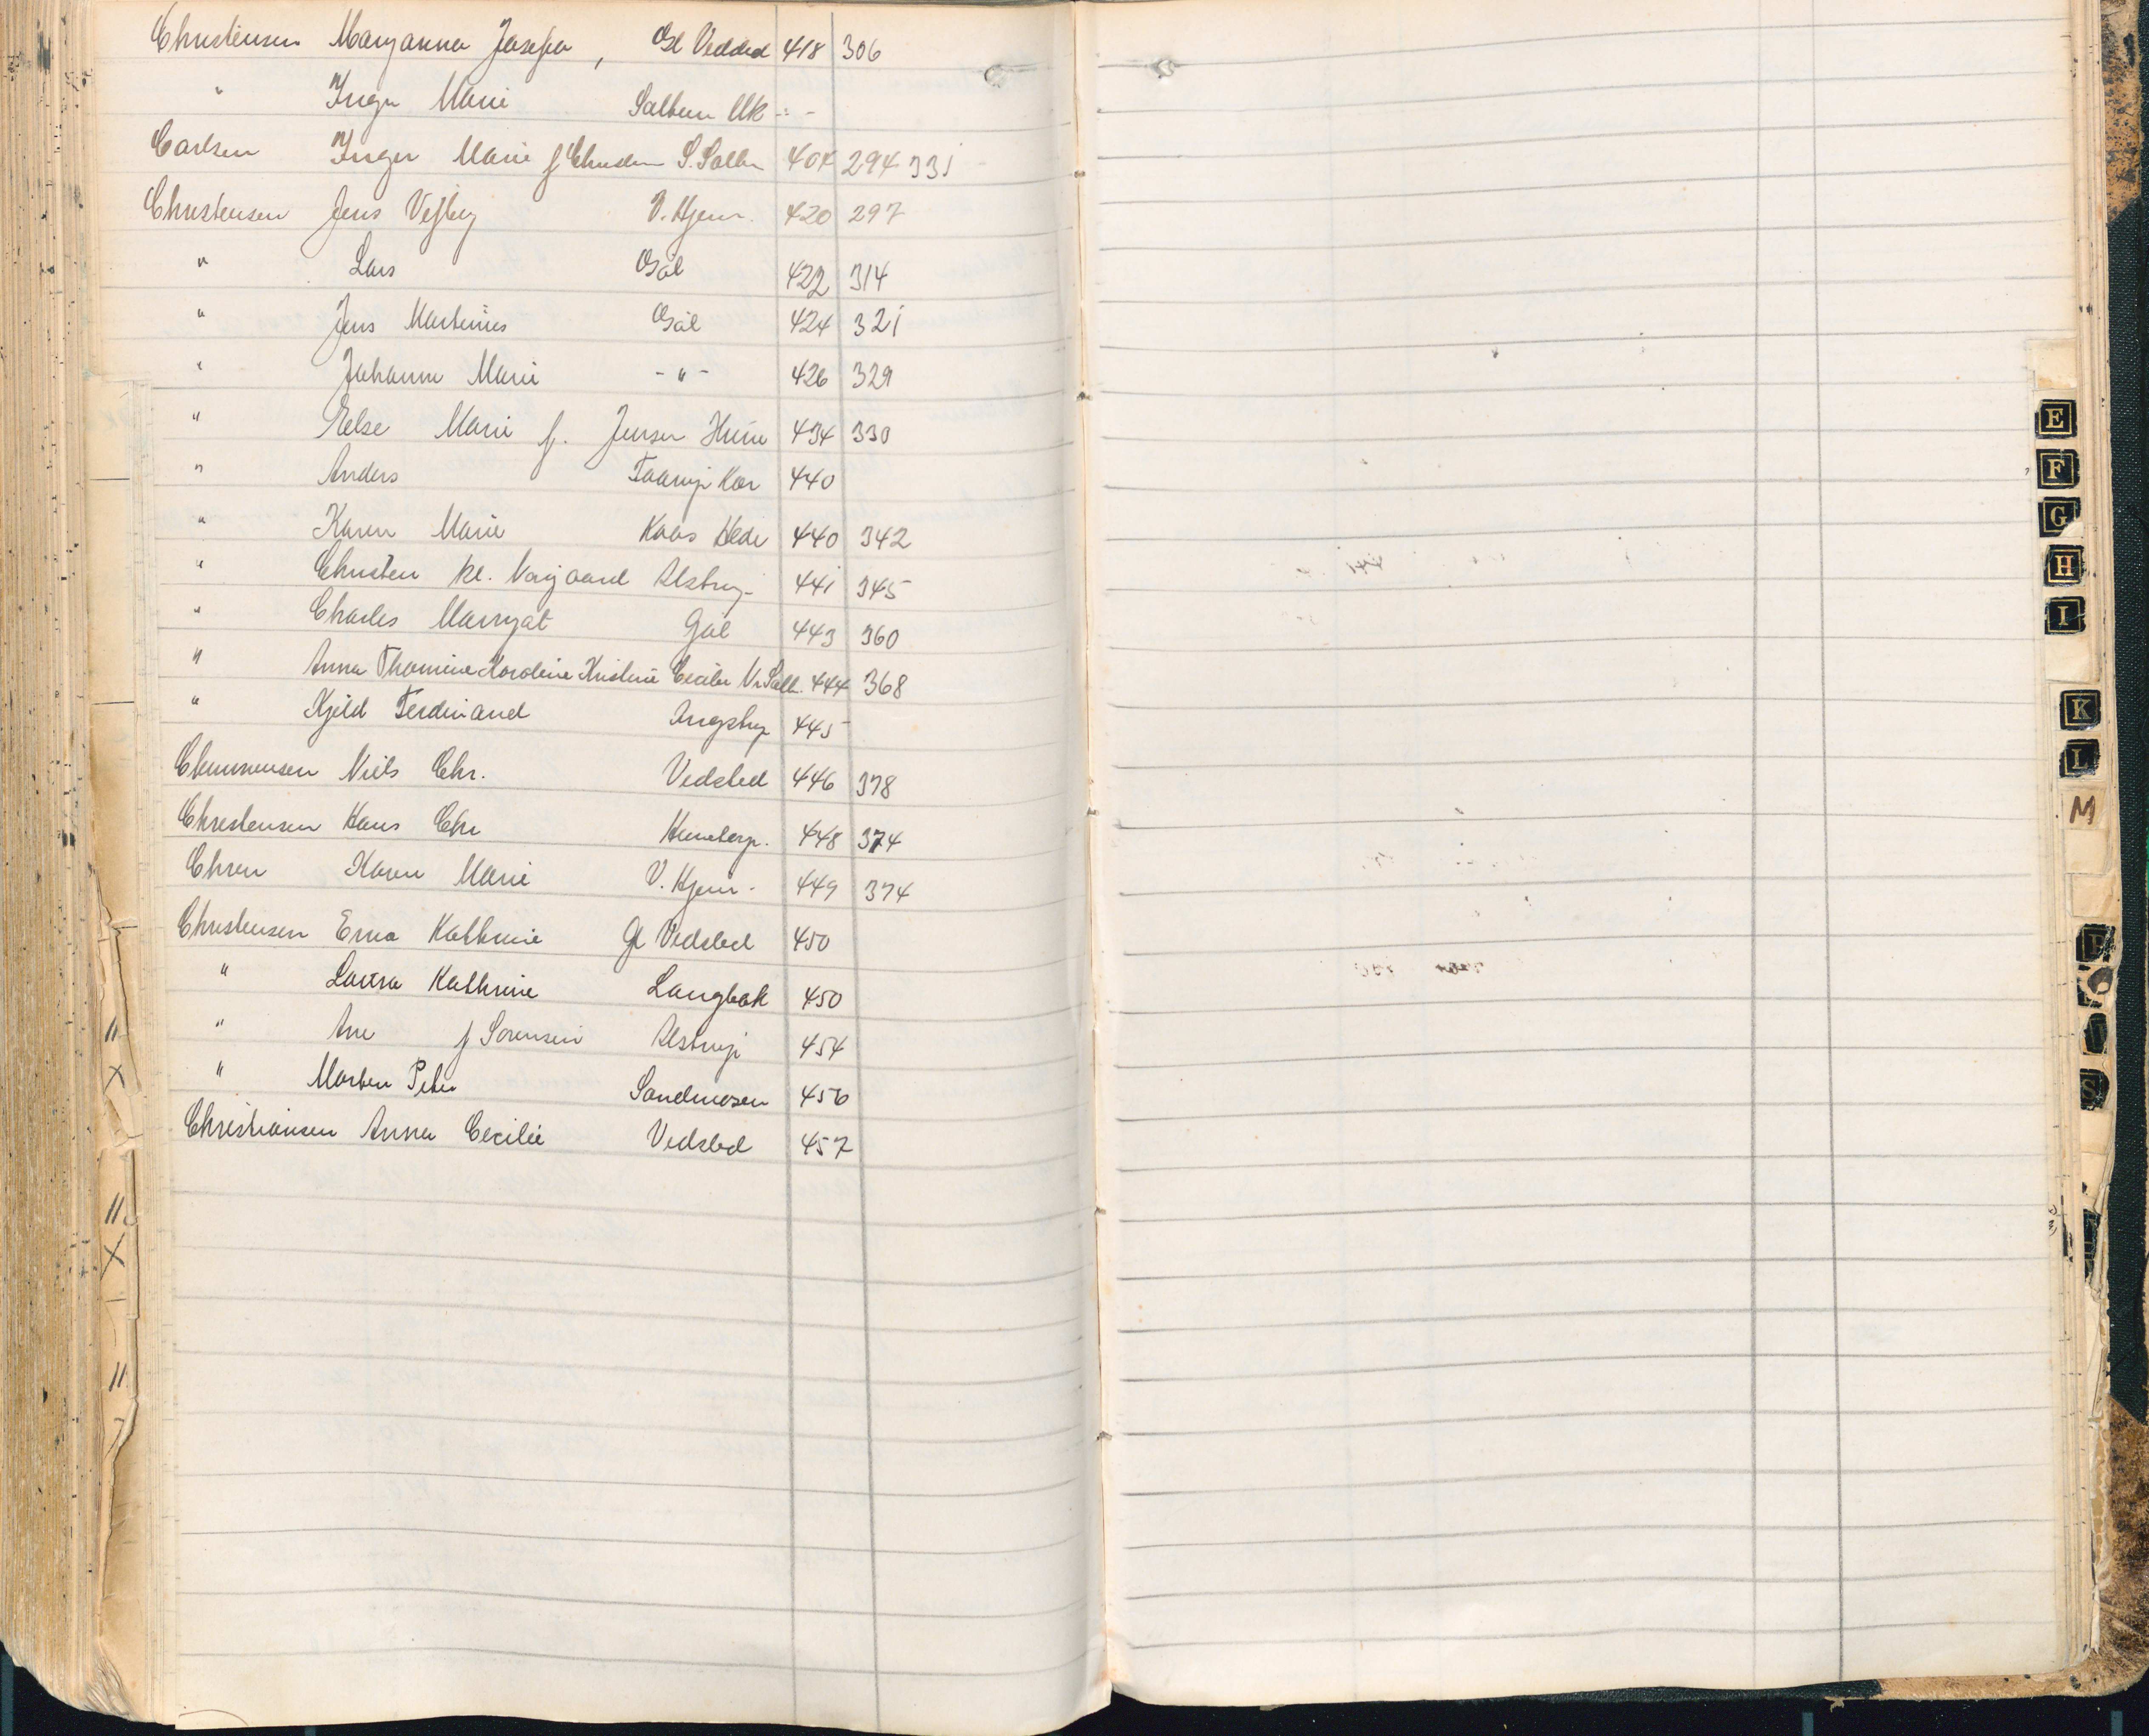 Christensen Maryanna Josefa, Gl Vedsted 418 306
" Inger Marie Saltum Uk - " -
Carlsen Inger Marie f Christen S. Saltu 404 294 331
Christensen Jens Vejby V. Hjerm. 420 297
" Lars Gøl 422 314
" Jens Martinus Gøl 424 321
" Johanne Marie - " - 426 329
" Else Marie f. Jensen Hune 434 330
" Anders Taarup Kær 440
" Karen Marie Kaas Hede 440 342
" Christen Kl. Vorgaard Alstrup 441 345
" Charles Marryat Gøl 443 360
" Anna Thomine Karoline Kristine Cecilie V. Salt. 444 368
" Kjeld Ferdinand Ingstrup 445
Clemmensen Niels Chr. Vedsted 446 378
Christensen Hans Chr Huneberg. 448 374
Chren Karen Marie V. Hjerm. 449 374
Christensen Erna Kathrine Gl Vedsted 450
" Laura Kathrine Langbak 450
" Ane f Sørensen Alstrup 454
" Morten Peter Sandmosen 456
Christiansen Anna Cecilie Vedsted 457
E
F
G
H
I
K
L
M
P
S